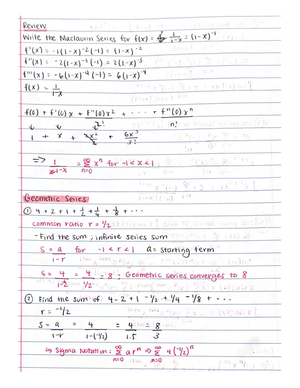 Review
Write the Maclaurin Series for f(x) = 1/1-x = (1-x)⁻¹
f'(x) = -1(1-x)⁻²(-1) = (1-x)⁻²
f''(x) = -2(1-x)⁻³(-1) = 2(1-x)⁻³
f'''(x) = -6(1-x)⁻⁴(-1) = 6(1-x)⁻⁴
f(x) = 1/1-x
f(0) + f'(0)x + f''(0)x²/2! + ... + fⁿ(0)xⁿ/n!
1 + x + 2x²/2! + 6x³/3!
=> 1/1-x = ∞Σn=0 xⁿ for -1<x<1
Geometric Series
① 4 + 2 + 1 + 1/2 + 1/4 + 1/8 + ...
common ratio r = 1/2
- Find the sum, infinite series sum
S = a/1-r for -1<r<1 a = starting term
S = 4/1-1/2 = 4/1/2 = 8; Geometric series converges to 8
② Find the sum of 4 - 2 + 1 - 1/2 + 1/4 - 1/8 + ...
r = -1/2
S = a/1-r = 4/1-(-1/2) = 4/1.5 = 8/3
↳ Sigma Notation: ∞Σn=0 arⁿ => ∞Σn=0 4(-1/2)ⁿ